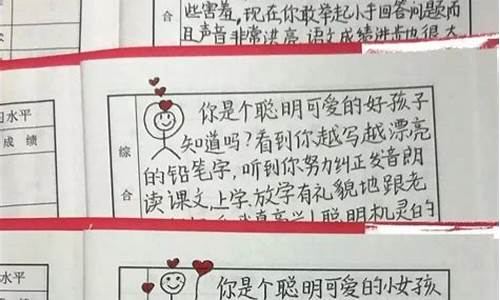 些害羞,现在你敢举起小手回答问题而
合
且声音非常洪亮,语文成绩进步也很大
水平
成绩
综
合
你是个聪明可爱的好孩子
知道吗?看到你越写越漂亮
的铅笔字,听到你努力纠正发音朗
读课文,上学、放学有礼貌地跟老
真高兴!聪明机灵的
水平
你是个聪明可爱的小女孩